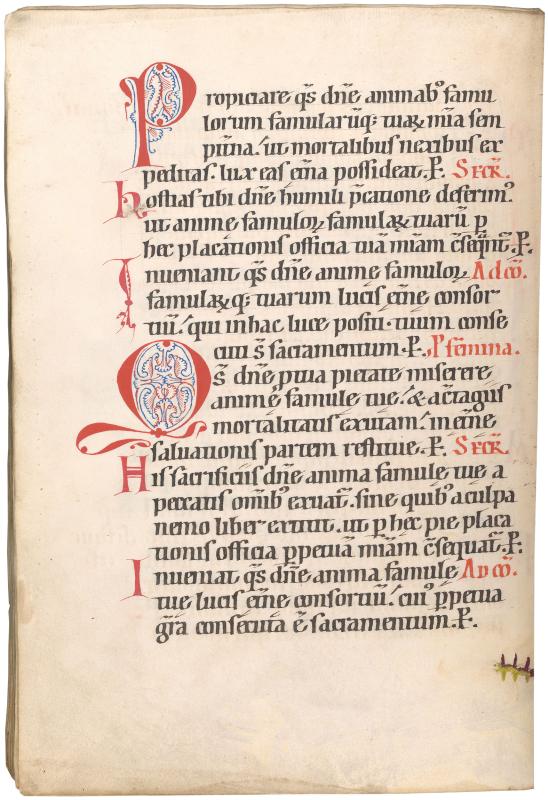 Propiciare qs̄ dn̄e animabꝰ famu
lorum famularūq; tuaꝝ mīa sem
pit̄na. ut mortalibus nexibus ex
peditas. lux eas et̄na possideat. P̄. SECR̄.
hostias tibi dn̄e humili p̄catione deferimꝰ.
ut anime famuloꝝ famulaꝝ tuarū p
hec placationis officia tuā mīam cōseqnt̄. P̄.
Inueniant qs̄ dn̄e anime famuloꝝ Ad cō.
famulaꝝq; tuarum lucis et̄ne consor
tiū. qui in hac luce positi. tuum conse
cuti s̄ sacramentum. P̄. P femina.
Qs̄ dn̄e p tua pietate miserere
anime famule tue. & a c̄tagiis
mortalitatis exutam. in et̄ne
saluationis partem restitue. P̄. SECR̄.
His sacrificiis dn̄e anima famule tue a
peccatis om̄ibꝰ exuat̄. sine quibꝰ a culpa
nemo liber extitit. ut p hec pie placa
tionis officia ppetuā mīam c̄sequat̄. P̄.
Inueniat qs̄ dn̄e anima famule AD CŌ.
tue lucis et̄ne consortiū. cuiꝰ ppetua
gr̄a consecuta ē sacramentum. P̄.